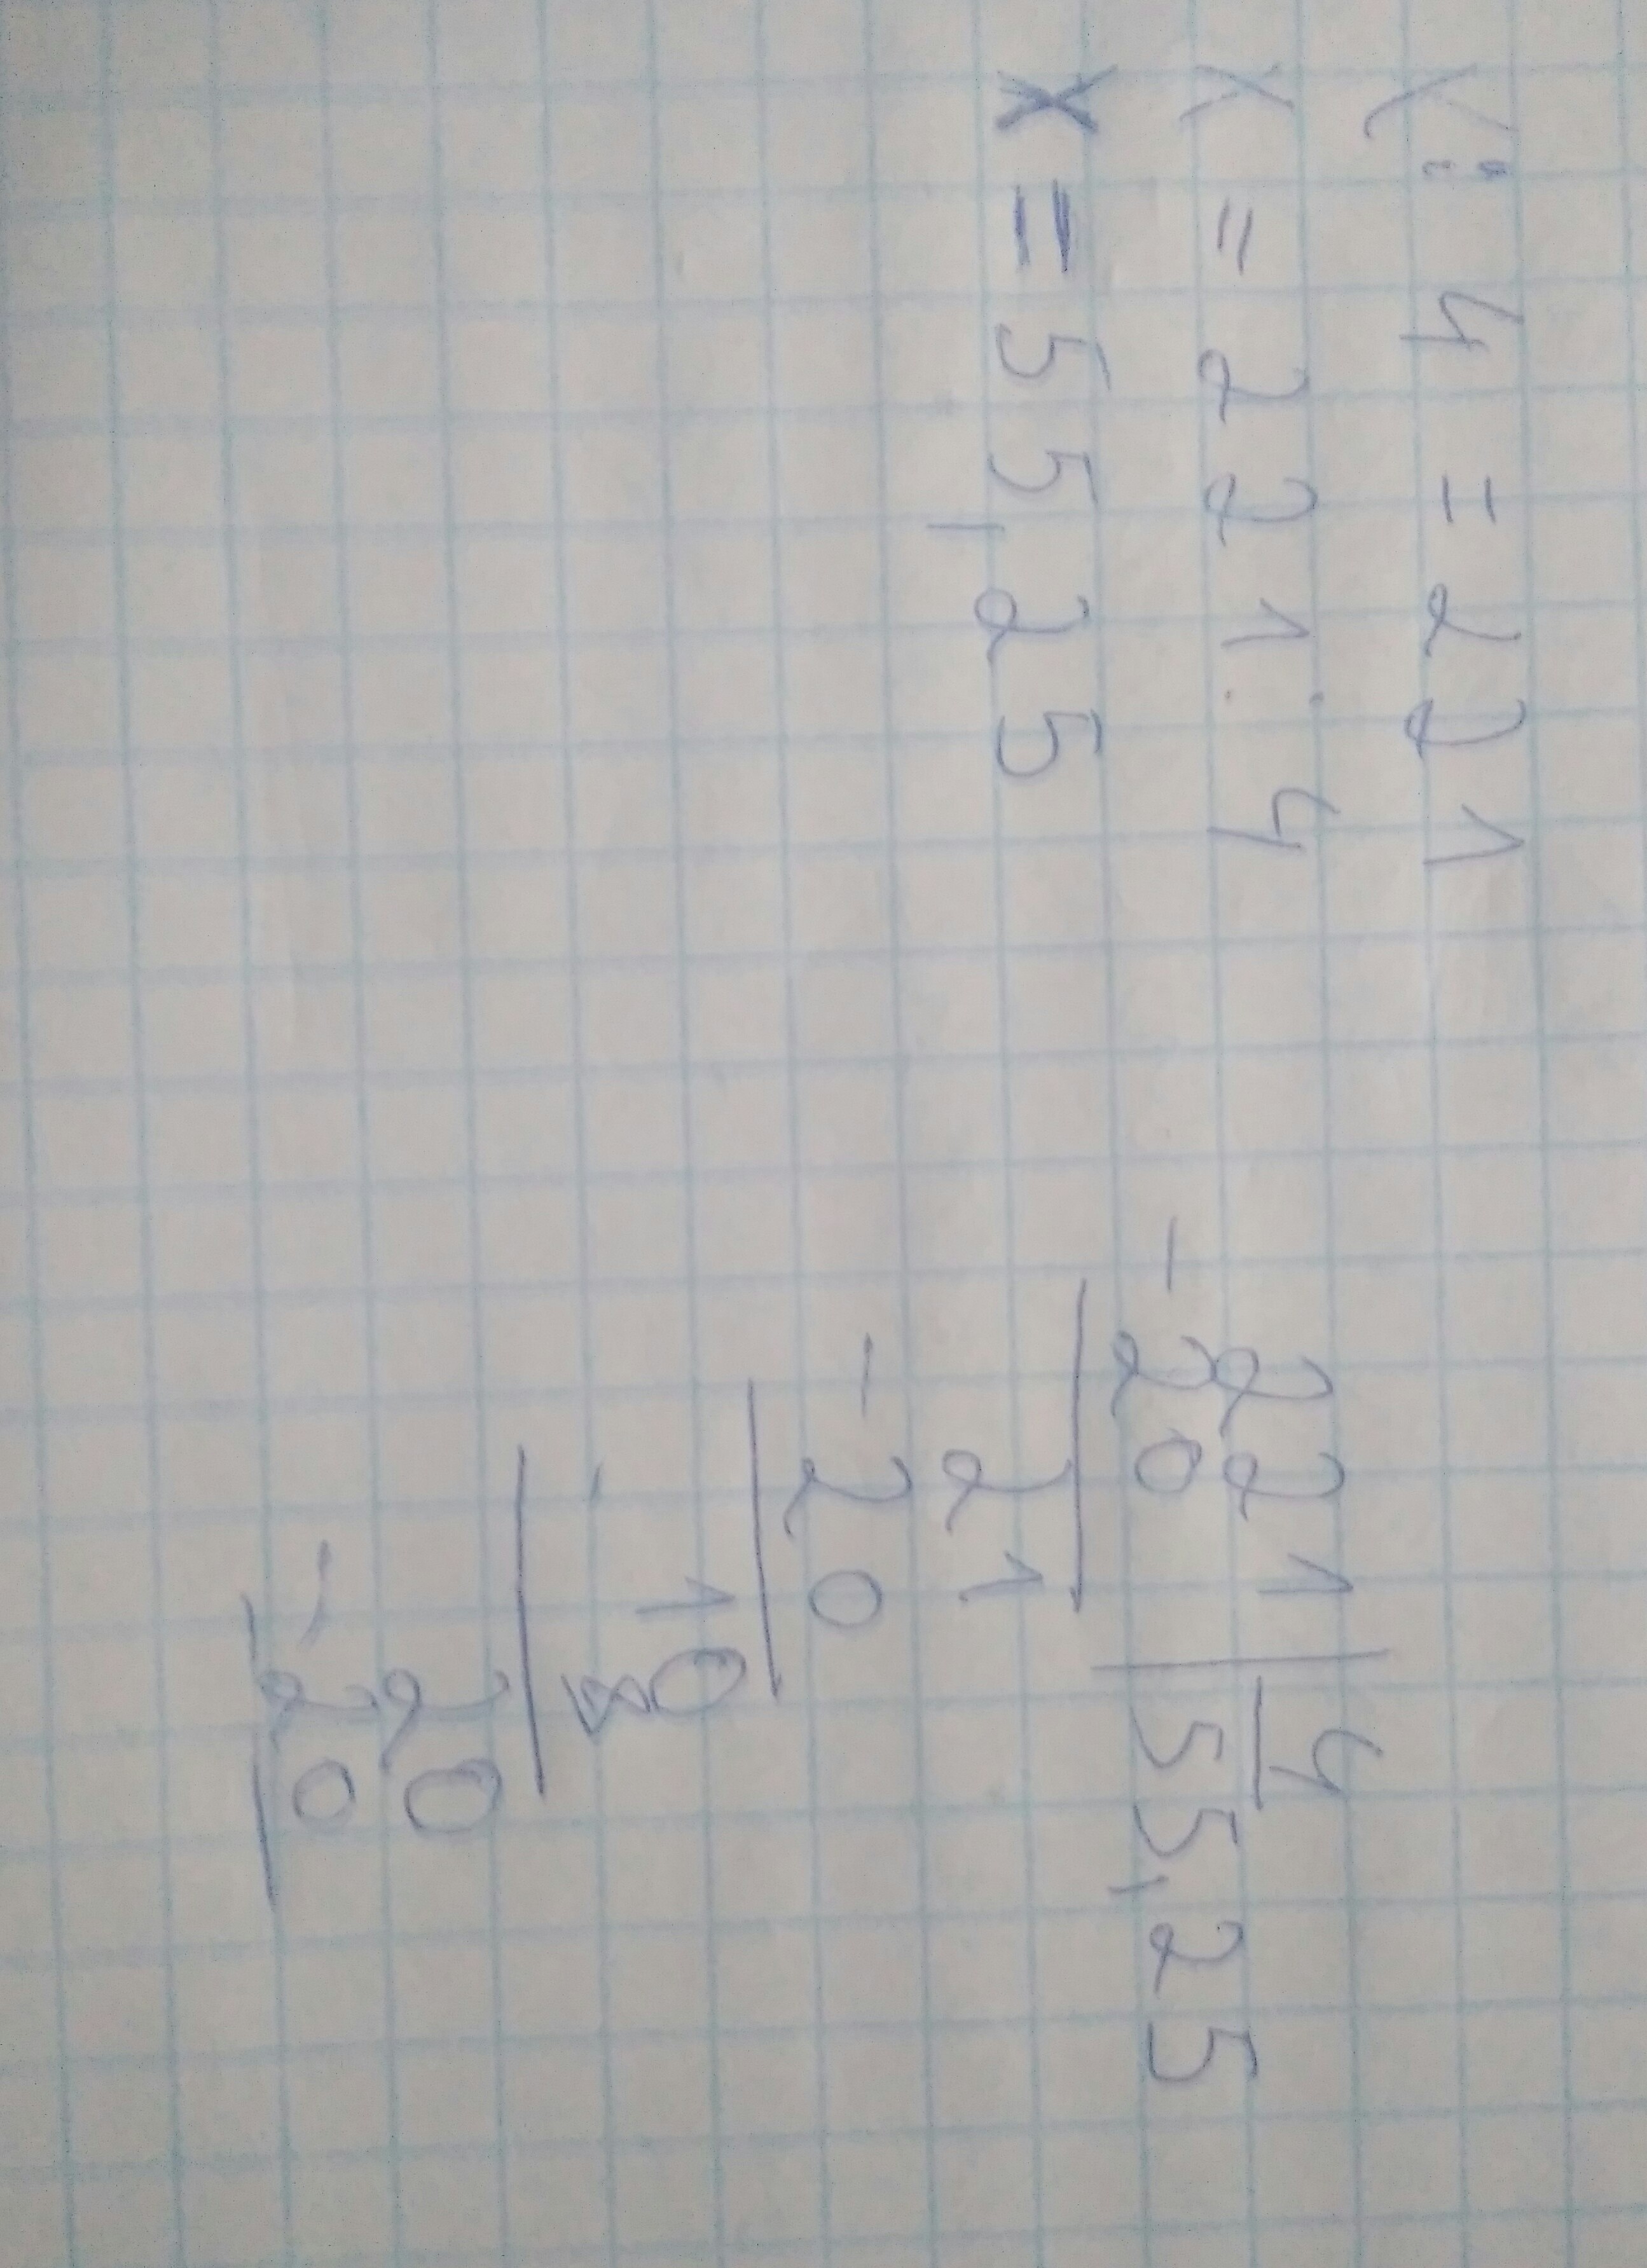 X : 4 = 221
X = 221 : 4
X = 55,25
221 | 4
- 20 | 55,25
21
- 20
10
- 8
20
- 20